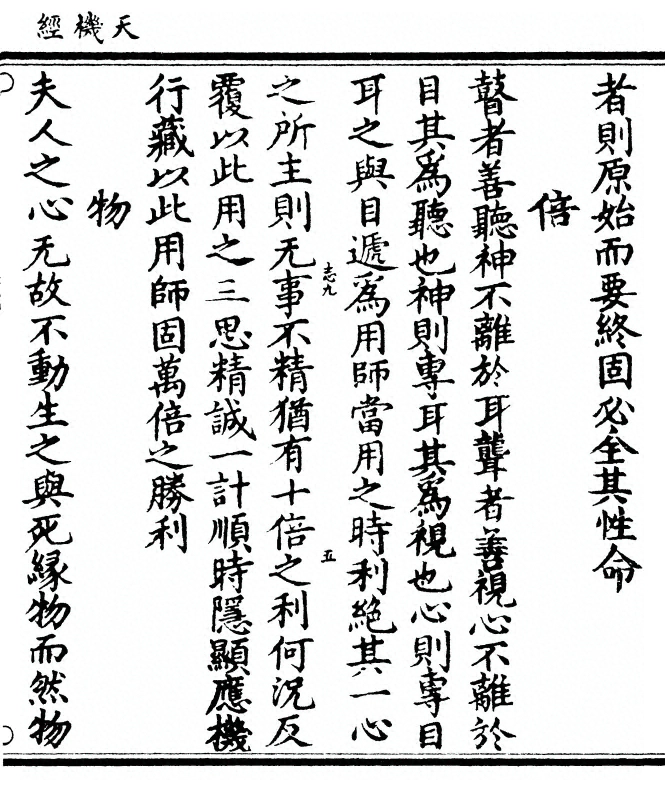 天機經
者則原始而要終固必全其性命
倍
瞽者善聽神不離於耳聾者善視心不離於
目其為聽也神則專耳其為視也心則專目
耳之與目遞為用師當用之時利絕其一心
之所主則无事不精猶有十倍之利何況反
志九
五
覆以此用之三思精誠一計順時隱顯應機
行藏以此用師固萬倍之勝利
物
夫人之心无故不動生之與死緣物而然物